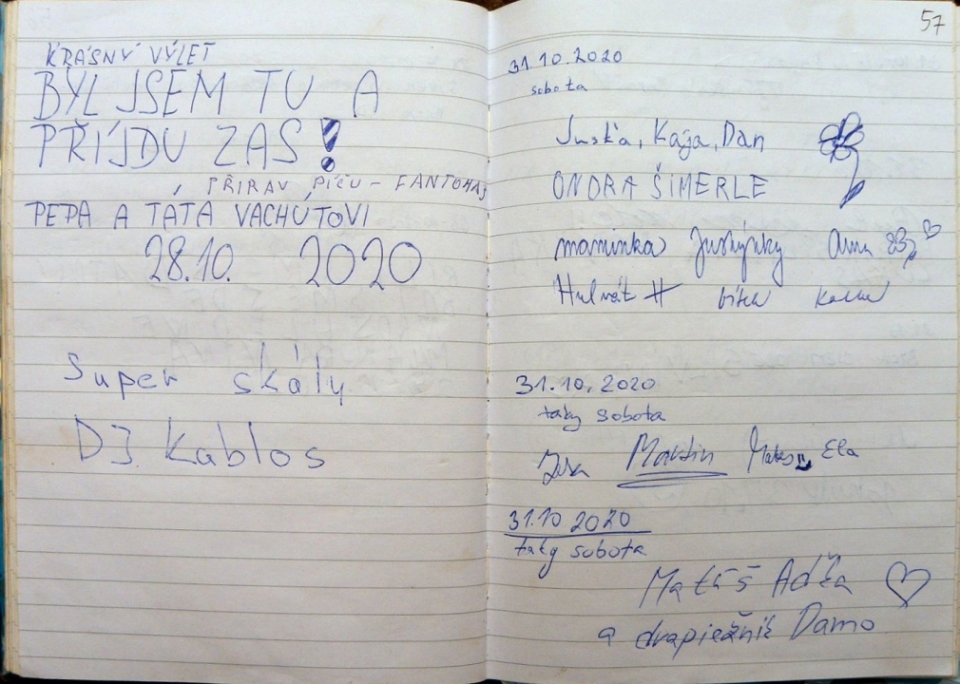 KRÁSNÝ VÝLET
BYL JSEM TU A
PŘÍJDU ZAS!
PŘIRAV PÍČU - FANTOMAS
PEPA A TÁTA VACHÚTOVI
28.10. 2020
Super skály
DJ Kablos
57
31.10.2020
sobota
Kája, Dan
ONDRA ŠIMERLE
maminka Justýnky
Hulvát #
31.10.2020
taky sobota
Martin Ela
31.10 2020
taky sobota
Matúš Aďka
a drapiežnik Damo